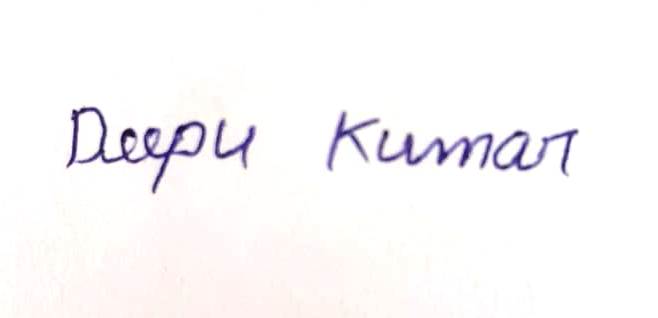 Deepu Kumar